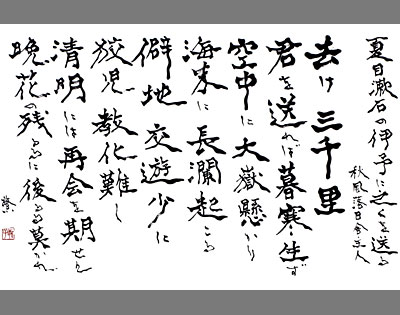 夏目漱石の伊予に之くを送る
秋風落日舎主人
去け三千里
君を送れば暮寒生ず
空中に大嶽懸かり
海末に長瀾起こる
僻地交遊少に
狡児教化難し
清明には再会を期せん
晩花の残るゝに後るる莫かれ